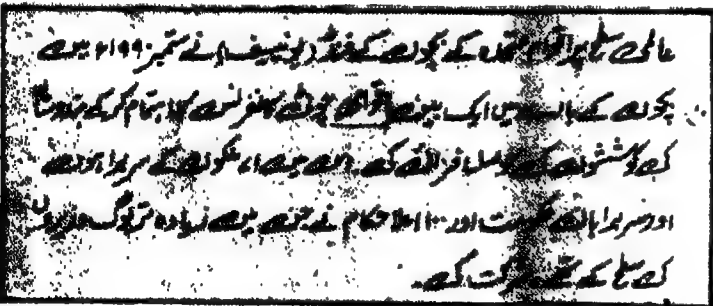 عالمی سطح پر اقوام متحدہ کے بچوں کے فنڈ (یونیسیف) نے ستمبر ۱۹۹۰ء میں
بچوں کے بارے میں ایک بین الاقوامی چوٹی کانفرنس کا اہتمام کر کے
کی کوششوں کی حوصلہ افزائی کی۔ اس میں ملکوں کے سربراہوں
اور سربراہان حکومت اور ۱۰۰ اعلیٰ حکام نے جن میں زیادہ تر لوگ
کی سطح کے تھے شرکت کی۔